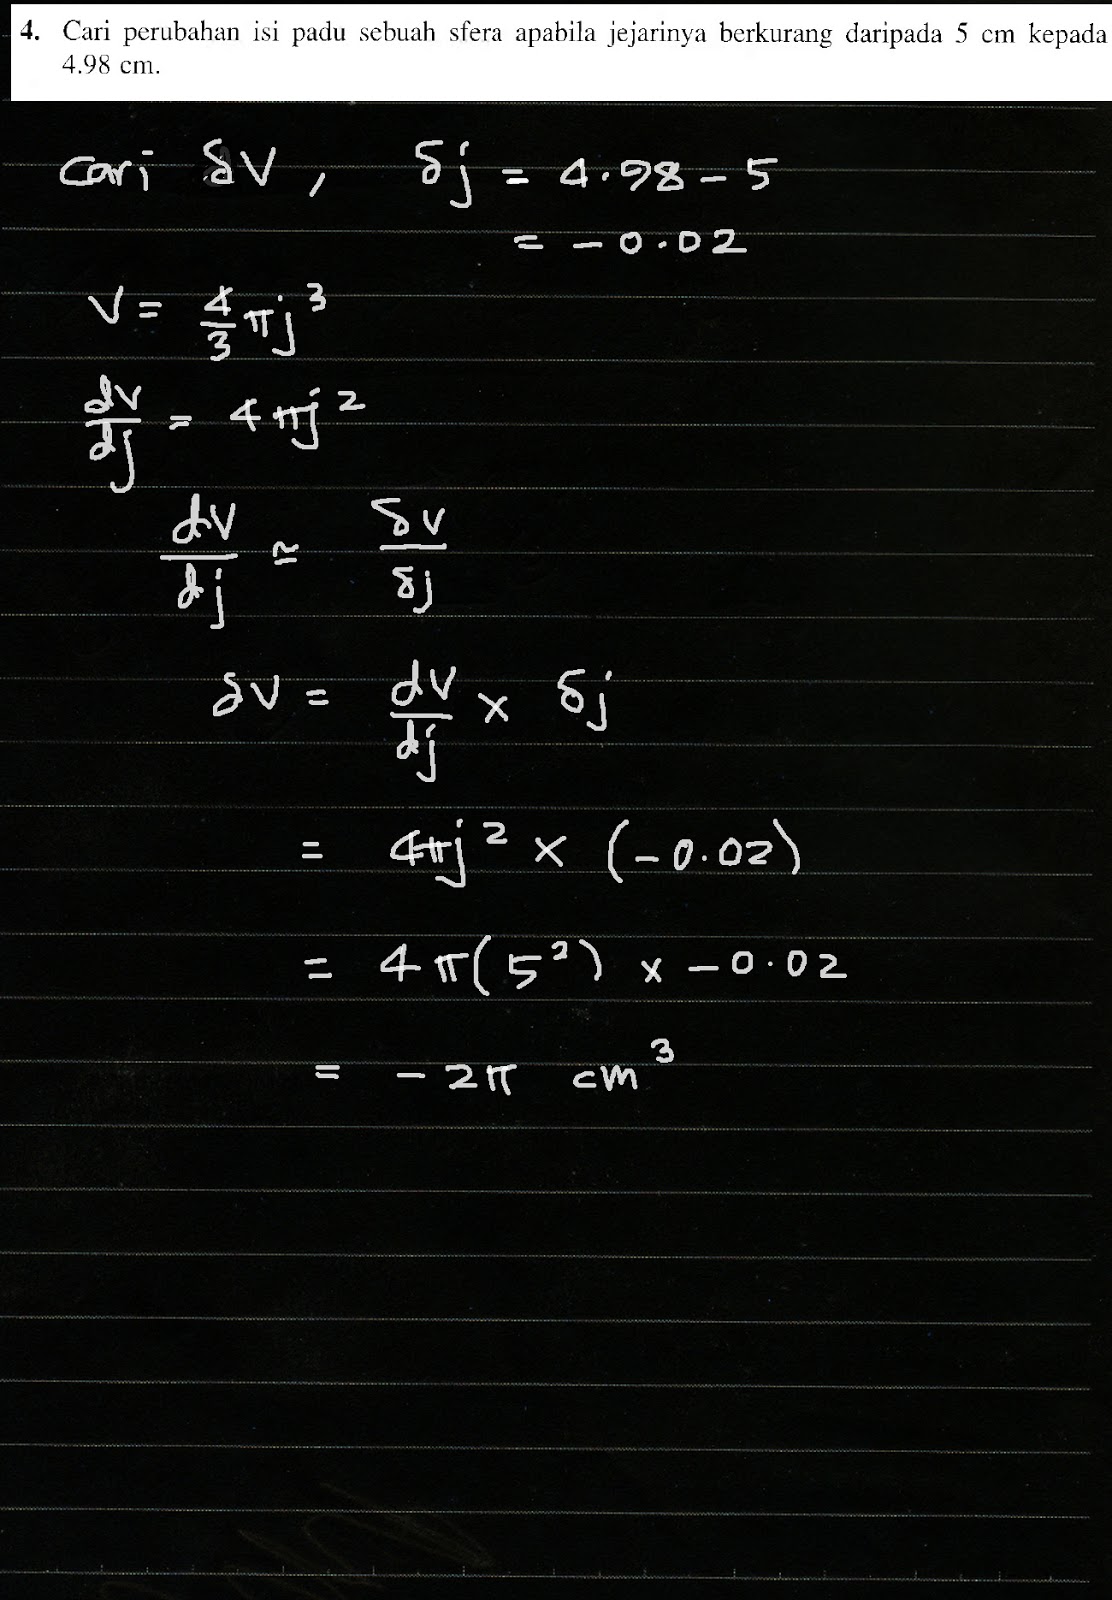 4. Cari perubahan isi padu sebuah sfera apabila jejarinya berkurang daripada 5 cm kepada
4.98 cm.
cari δV, δj = 4.98 - 5
= - 0.02
V = 4/3 πj³
dv/dj = 4πj²
dV/dj ≈ δV/δj
δV = dV/dj × δj
= 4πj² × (-0.02)
= 4π(5²) × -0.02
= -2π cm³